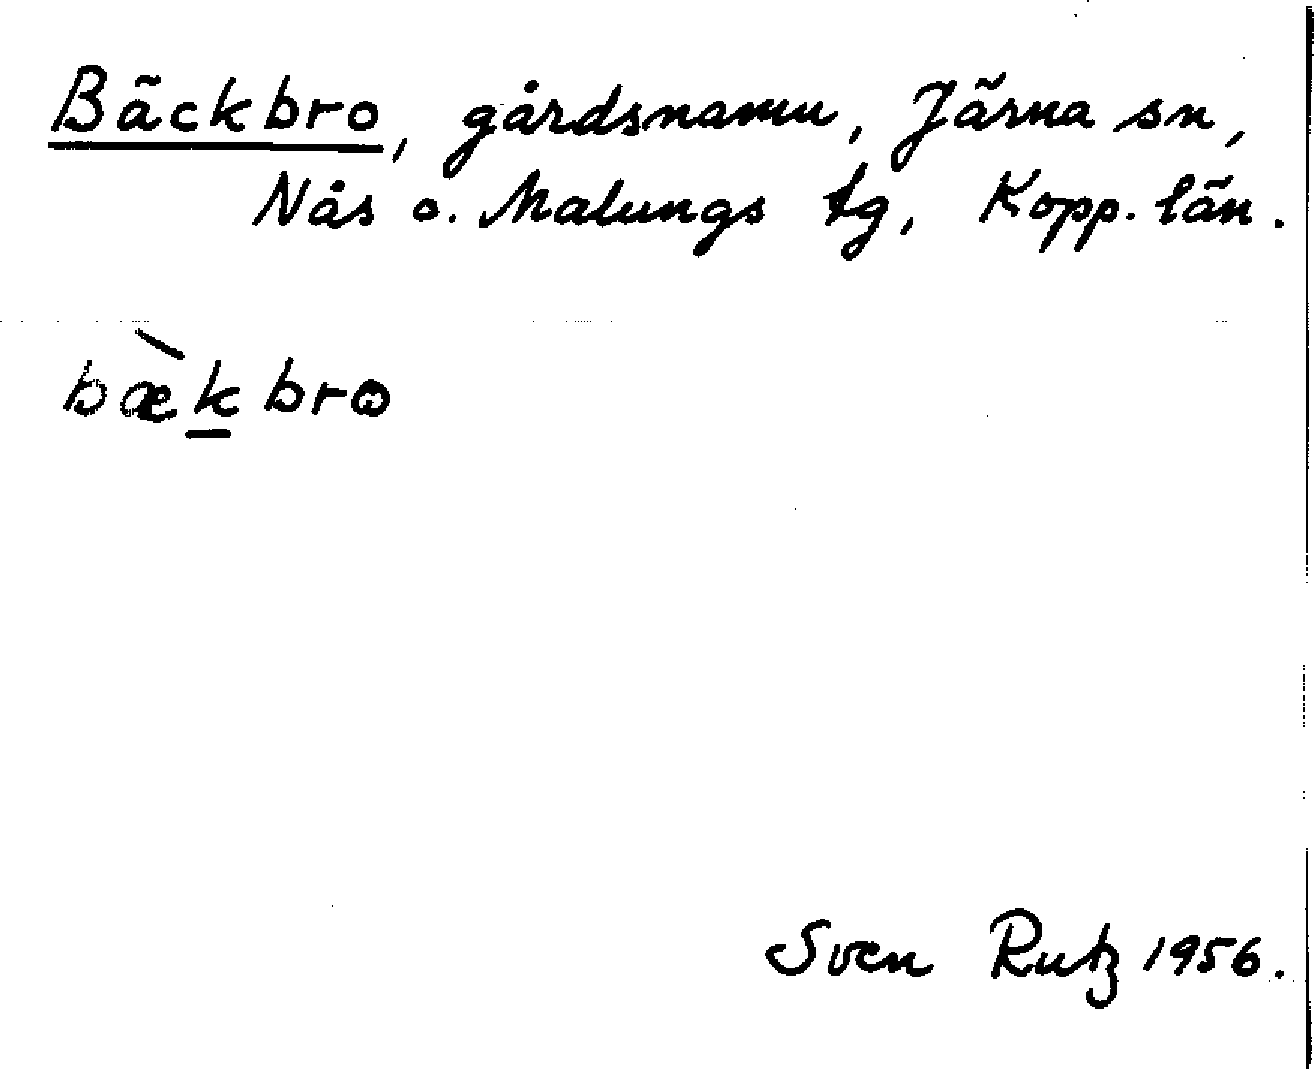 Bäckbro, gårdsnamn, Järna sn,
Nås o. Malungs tg, Kopp. län.
bæ̀k̲bro
Sven Rutz 1956.